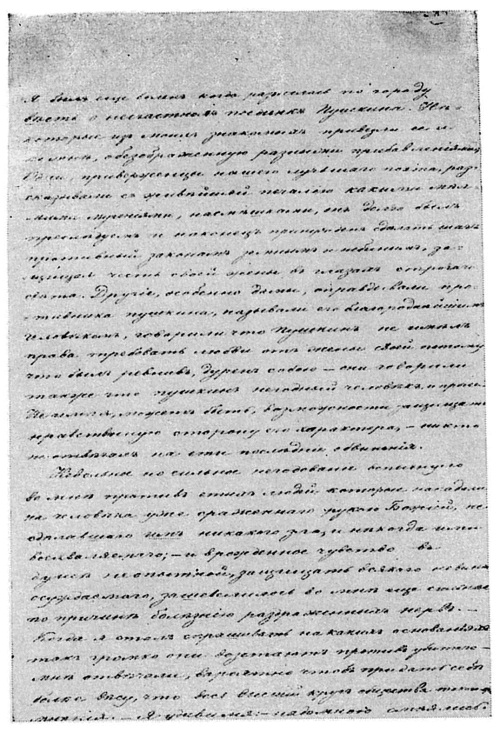 Я былъ еще боленъ когда разнеслась по городу
вѣсть о несчастномъ поединкѣ Пушкина. Нѣ-
которые изъ моихъ знакомыхъ привезли ее и
ко мнѣ, обезображенную разными прибавленіями
Одни, приверженцы нашего лучшаго поэта, раз-
сказывали съ живѣйшей печалію какими мел-
кими мученіями, насмѣшками, онъ долго былъ
преслѣдуемъ и наконецъ принужденъ сдѣлать шагъ
противный законамъ земнымъ и небеснымъ, за-
щищая честь своей жены въ глазахъ строгаго
свѣта. Другіе, особенно дамы, оправдывали про-
тивника Пушкина, называли его благороднѣйшимъ
человѣкомъ, говорили что Пушкинъ не имѣлъ
права требовать любви отъ жены своей потому
что былъ ревнивъ, дуренъ собою – они говорили
также что Пушкинъ негодный человѣкъ и проч..
Не имѣя, можетъ быть, возможности защищать
нравственную сторону его характера, – никто
не отвѣчалъ на эти послѣднія обвиненія.
Невольное но сильное негодованіе вспыхнуло
во мнѣ противъ этихъ людей которые нападали
на человѣка уже сраженнаго рукою Божіей, не
сдѣлавшаго имъ никакого зла, и нѣкогда ими
восхваляемаго; – и врожденное чувство въ
душѣ неопытной, защищать всякаго невинно
осуждаемаго, зашевелилось во мнѣ еще сильнѣе
по причинѣ болѣзнію раздраженныхъ нервъ. –
Когда я сталъ спрашивать на какихъ основаніяхъ
такъ громко они возстаютъ противъ убитаго –
мнѣ отвѣчали, вѣроятно чтобъ придать себѣ
болѣе вѣсу, что весь высшій кругъ общества такого
мнѣнія. – Я удивился: – надо мною смѣялись.